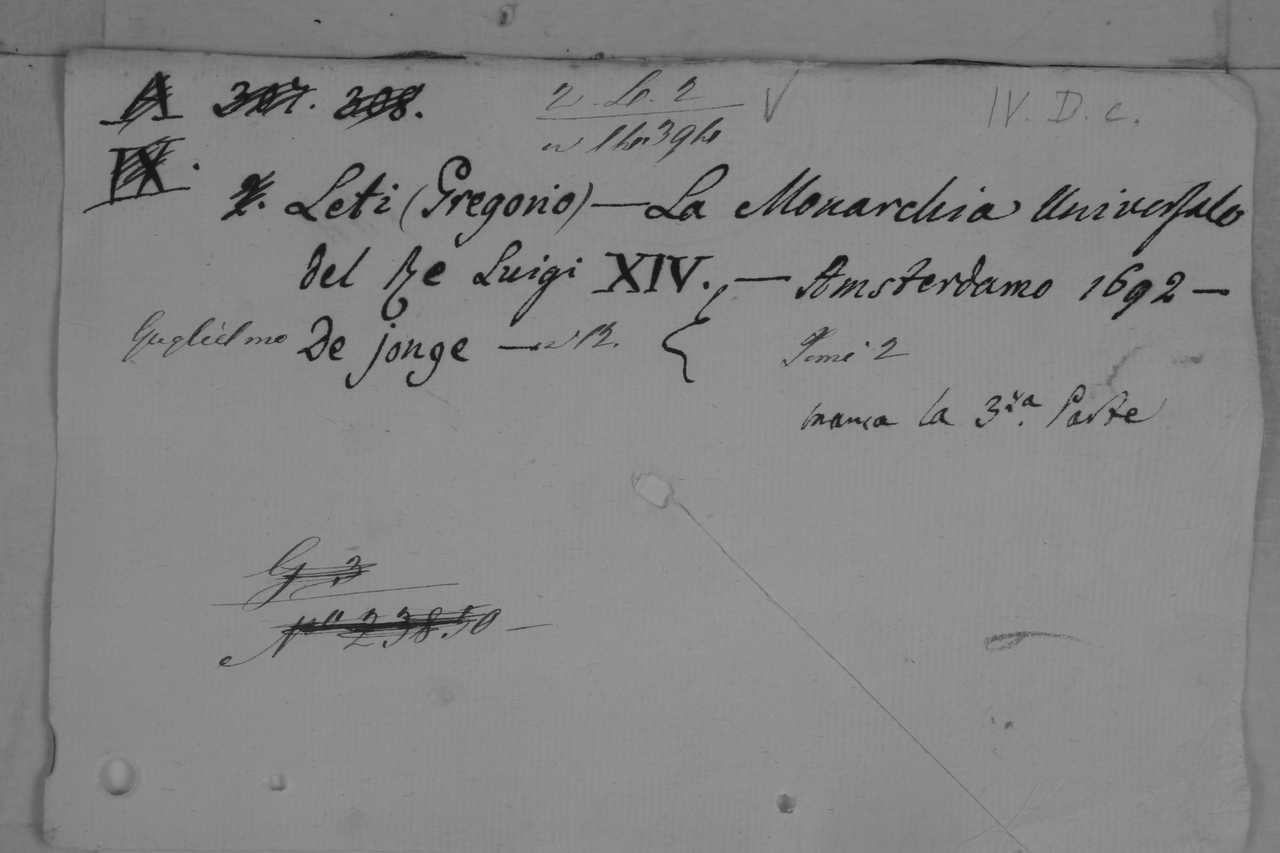 A 307. 308.
IV. D. c.
IX.
Leti (Gregorio) — La Monarchia Universale
del Re Luigi XIV. — Amsterdamo 1692 —
Guglielmo De jonge — in 12. { Tomi 2
manca la 3za. Parte
G 3
No 23850 —